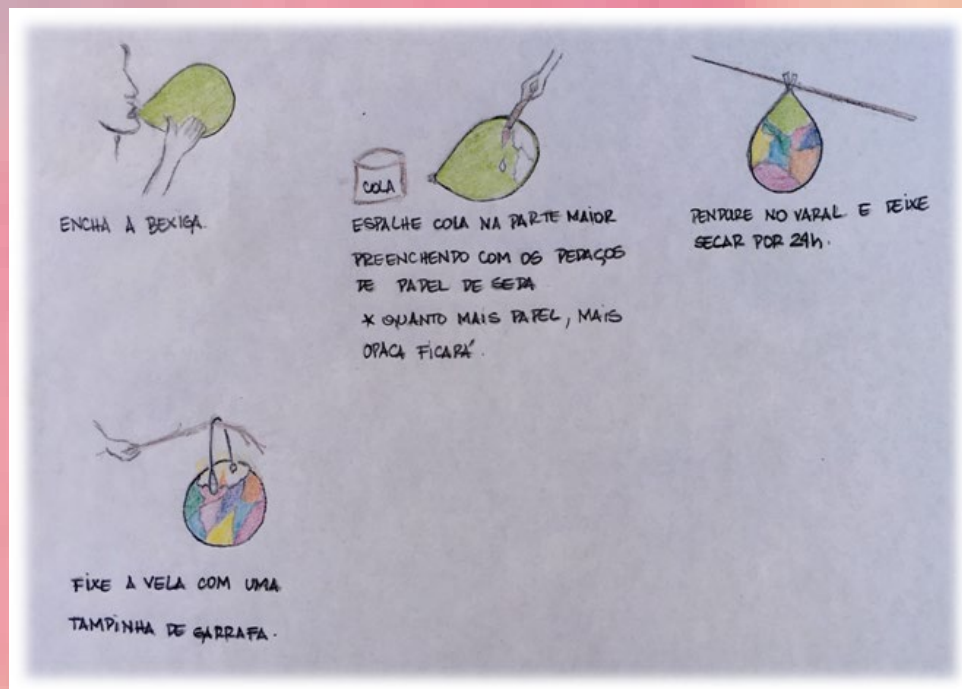 ENCHA A BEXIGA.
COLA
ESPALHE COLA NA PARTE MAIOR
PREENCHENDO COM OS PEDAÇOS
DE PAPEL DE SEDA
* QUANTO MAIS PAPEL, MAIS
OPACA FICARÁ.
PENDURE NO VARAL E DEIXE
SECAR POR 24h.
FIXE A VELA COM UMA
TAMPINHA DE GARRAFA.